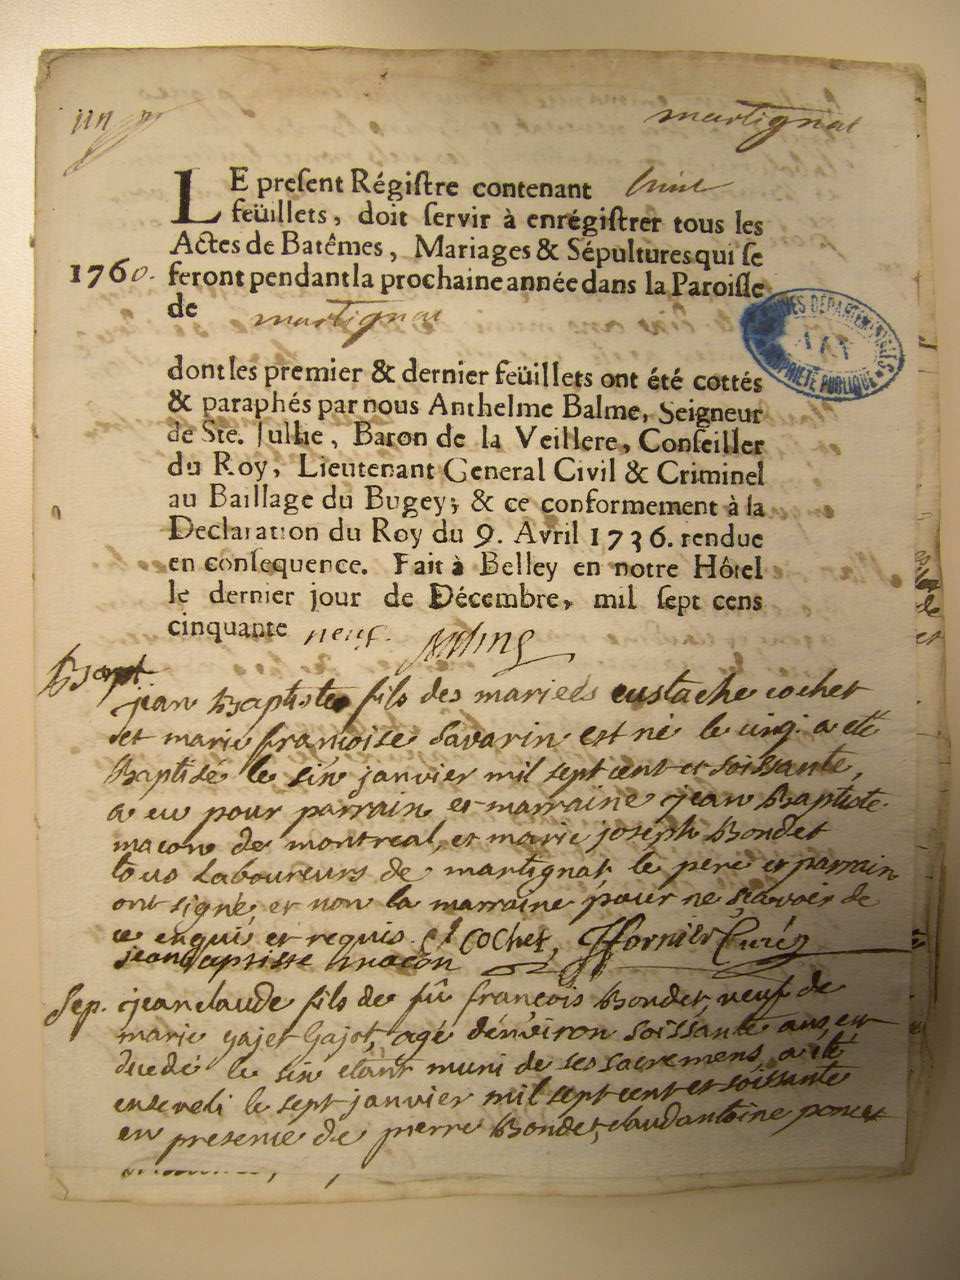 martignat
LE present Régistre contenant
feüillets, doit servir à enrégistrer tous les
Actes de Batêmes, Mariages & Sépultures qui se
1760. feront pendant la prochaine année dans la Paroisse
de martignat
ARCHIVES DÉPARTEMENTALES
AIN
PROPRIÉTÉ PUBLIQUE
dont les premier & dernier feüillets ont été cottés
& paraphés par nous Anthelme Balme, Seigneur
de Ste. Julhe, Baron de la Veillere, Conseiller
du Roy, Lieutenant General Civil & Criminel
au Baillage du Bugey; & ce conformement à la
Declaration du Roy du 9. Avril 1736. rendue
en consequence. Fait à Belley en notre Hôtel
le dernier jour de Décembre, mil sept cens
cinquante neuf.
Bapt.
jean Baptiste fils des mariés eustache cochet
et marie françoise Savarin est né le cinq. a eté
Baptisé le six janvier mil sept cent et soissante,
a eu pour parrain et marraine jean Baptiste
macon de montreal, et marie joseph Bondet
tous Laboureurs de martignat, le pere et parrain
ont signé, et non la marraine pour ne sçavoir de
ce enquis et requis. Cochet, Fornier Curé
jean baptiste macon
Sep. jean claude fils de fû françois Bondet, veuf de
marie gajet Gajot, agé d'environ soissante ans, est
decedé le six etant muni de ses sacremens, a eté
enseveli le sept janvier mil sept cent et soissante
en presence de pierre Bondet, claud antoine poncet